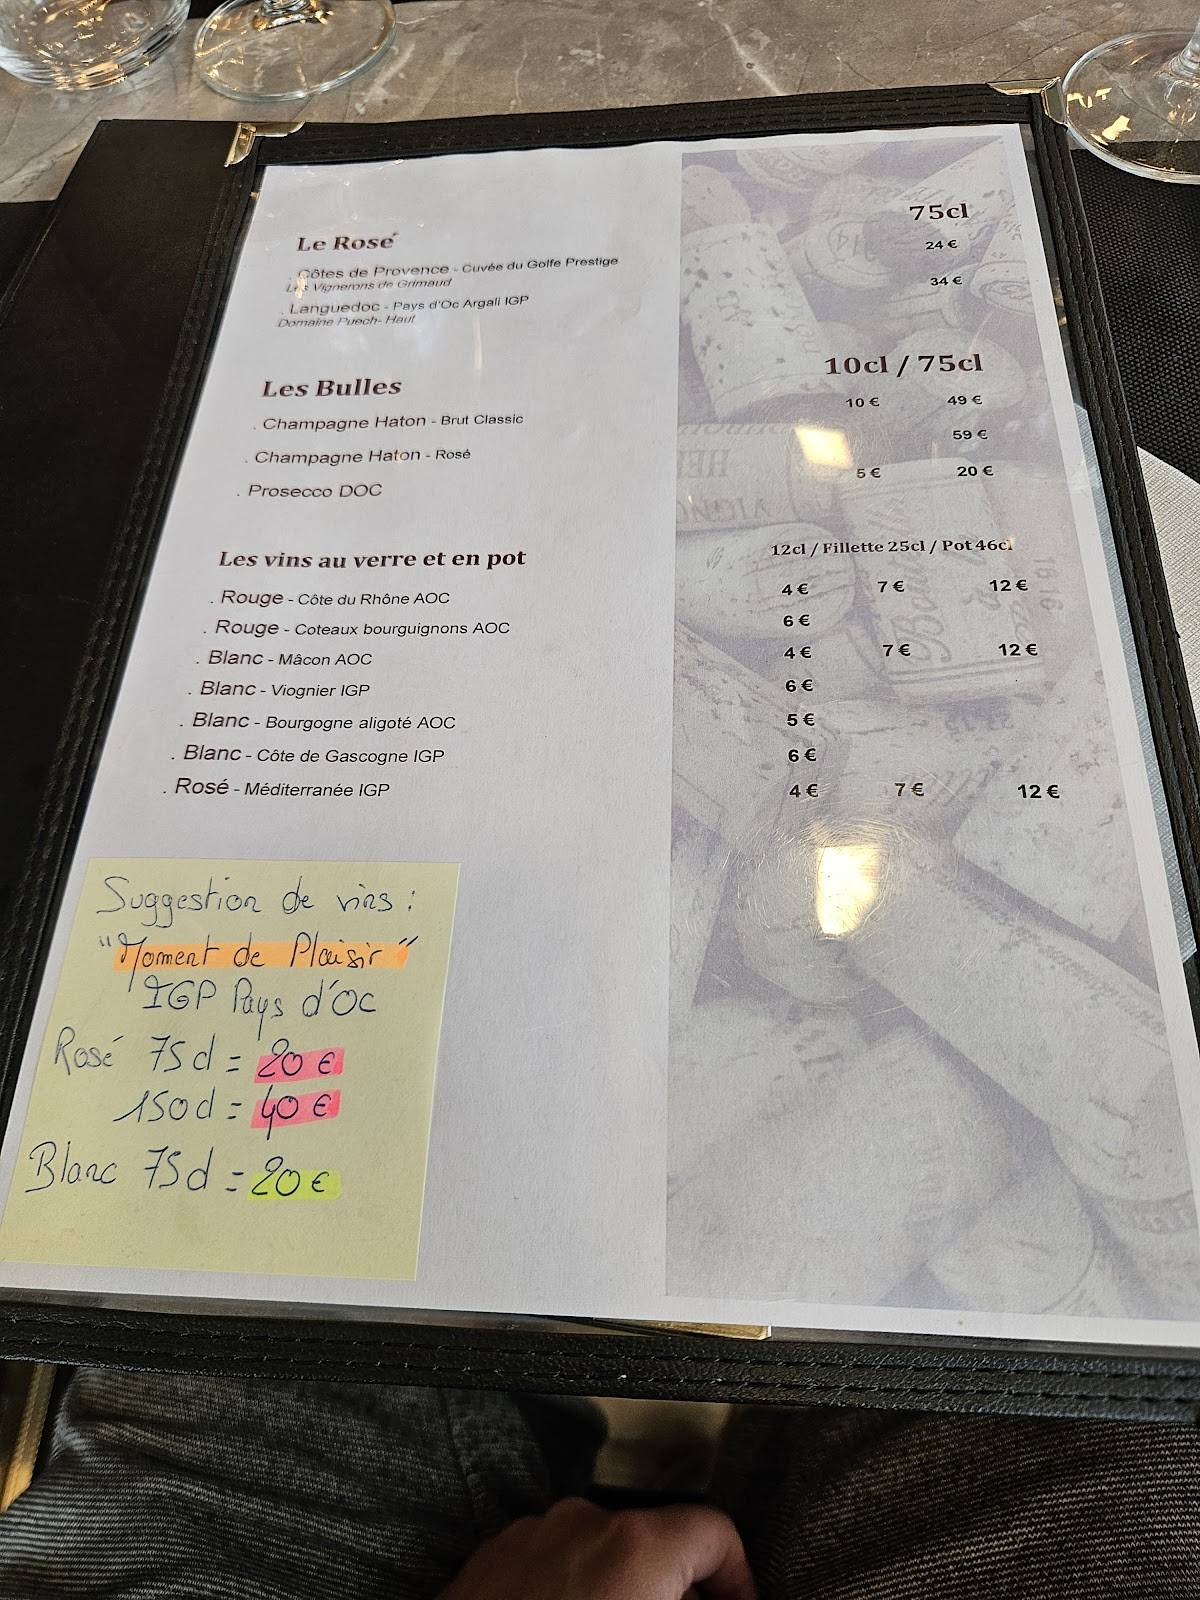 75cl
Le Rosé
. Côtes de Provence - Cuvée du Golfe Prestige 24 €
Les Vignerons de Grimaud
. Languedoc - Pays d'Oc Argali IGP 34 €
Domaine Puech- Haut
Les Bulles 10cl / 75cl
. Champagne Haton - Brut Classic 10 € 49 €
. Champagne Haton - Rosé 59 €
. Prosecco DOC 5 € 20 €
Les vins au verre et en pot 12cl / Fillette 25cl / Pot 46cl
. Rouge - Côte du Rhône AOC 4 € 7 € 12 €
. Rouge - Coteaux bourguignons AOC 6 €
. Blanc - Mâcon AOC 4 € 7 € 12 €
. Blanc - Viognier IGP 6 €
. Blanc - Bourgogne aligoté AOC 5 €
. Blanc - Côte de Gascogne IGP 6 €
. Rosé - Méditerranée IGP 4 € 7 € 12 €
Suggestion de vins :
"Moment de Plaisir"
IGP Pays d'Oc
Rosé 75cl = 20 €
150cl = 40 €
Blanc 75cl = 20 €